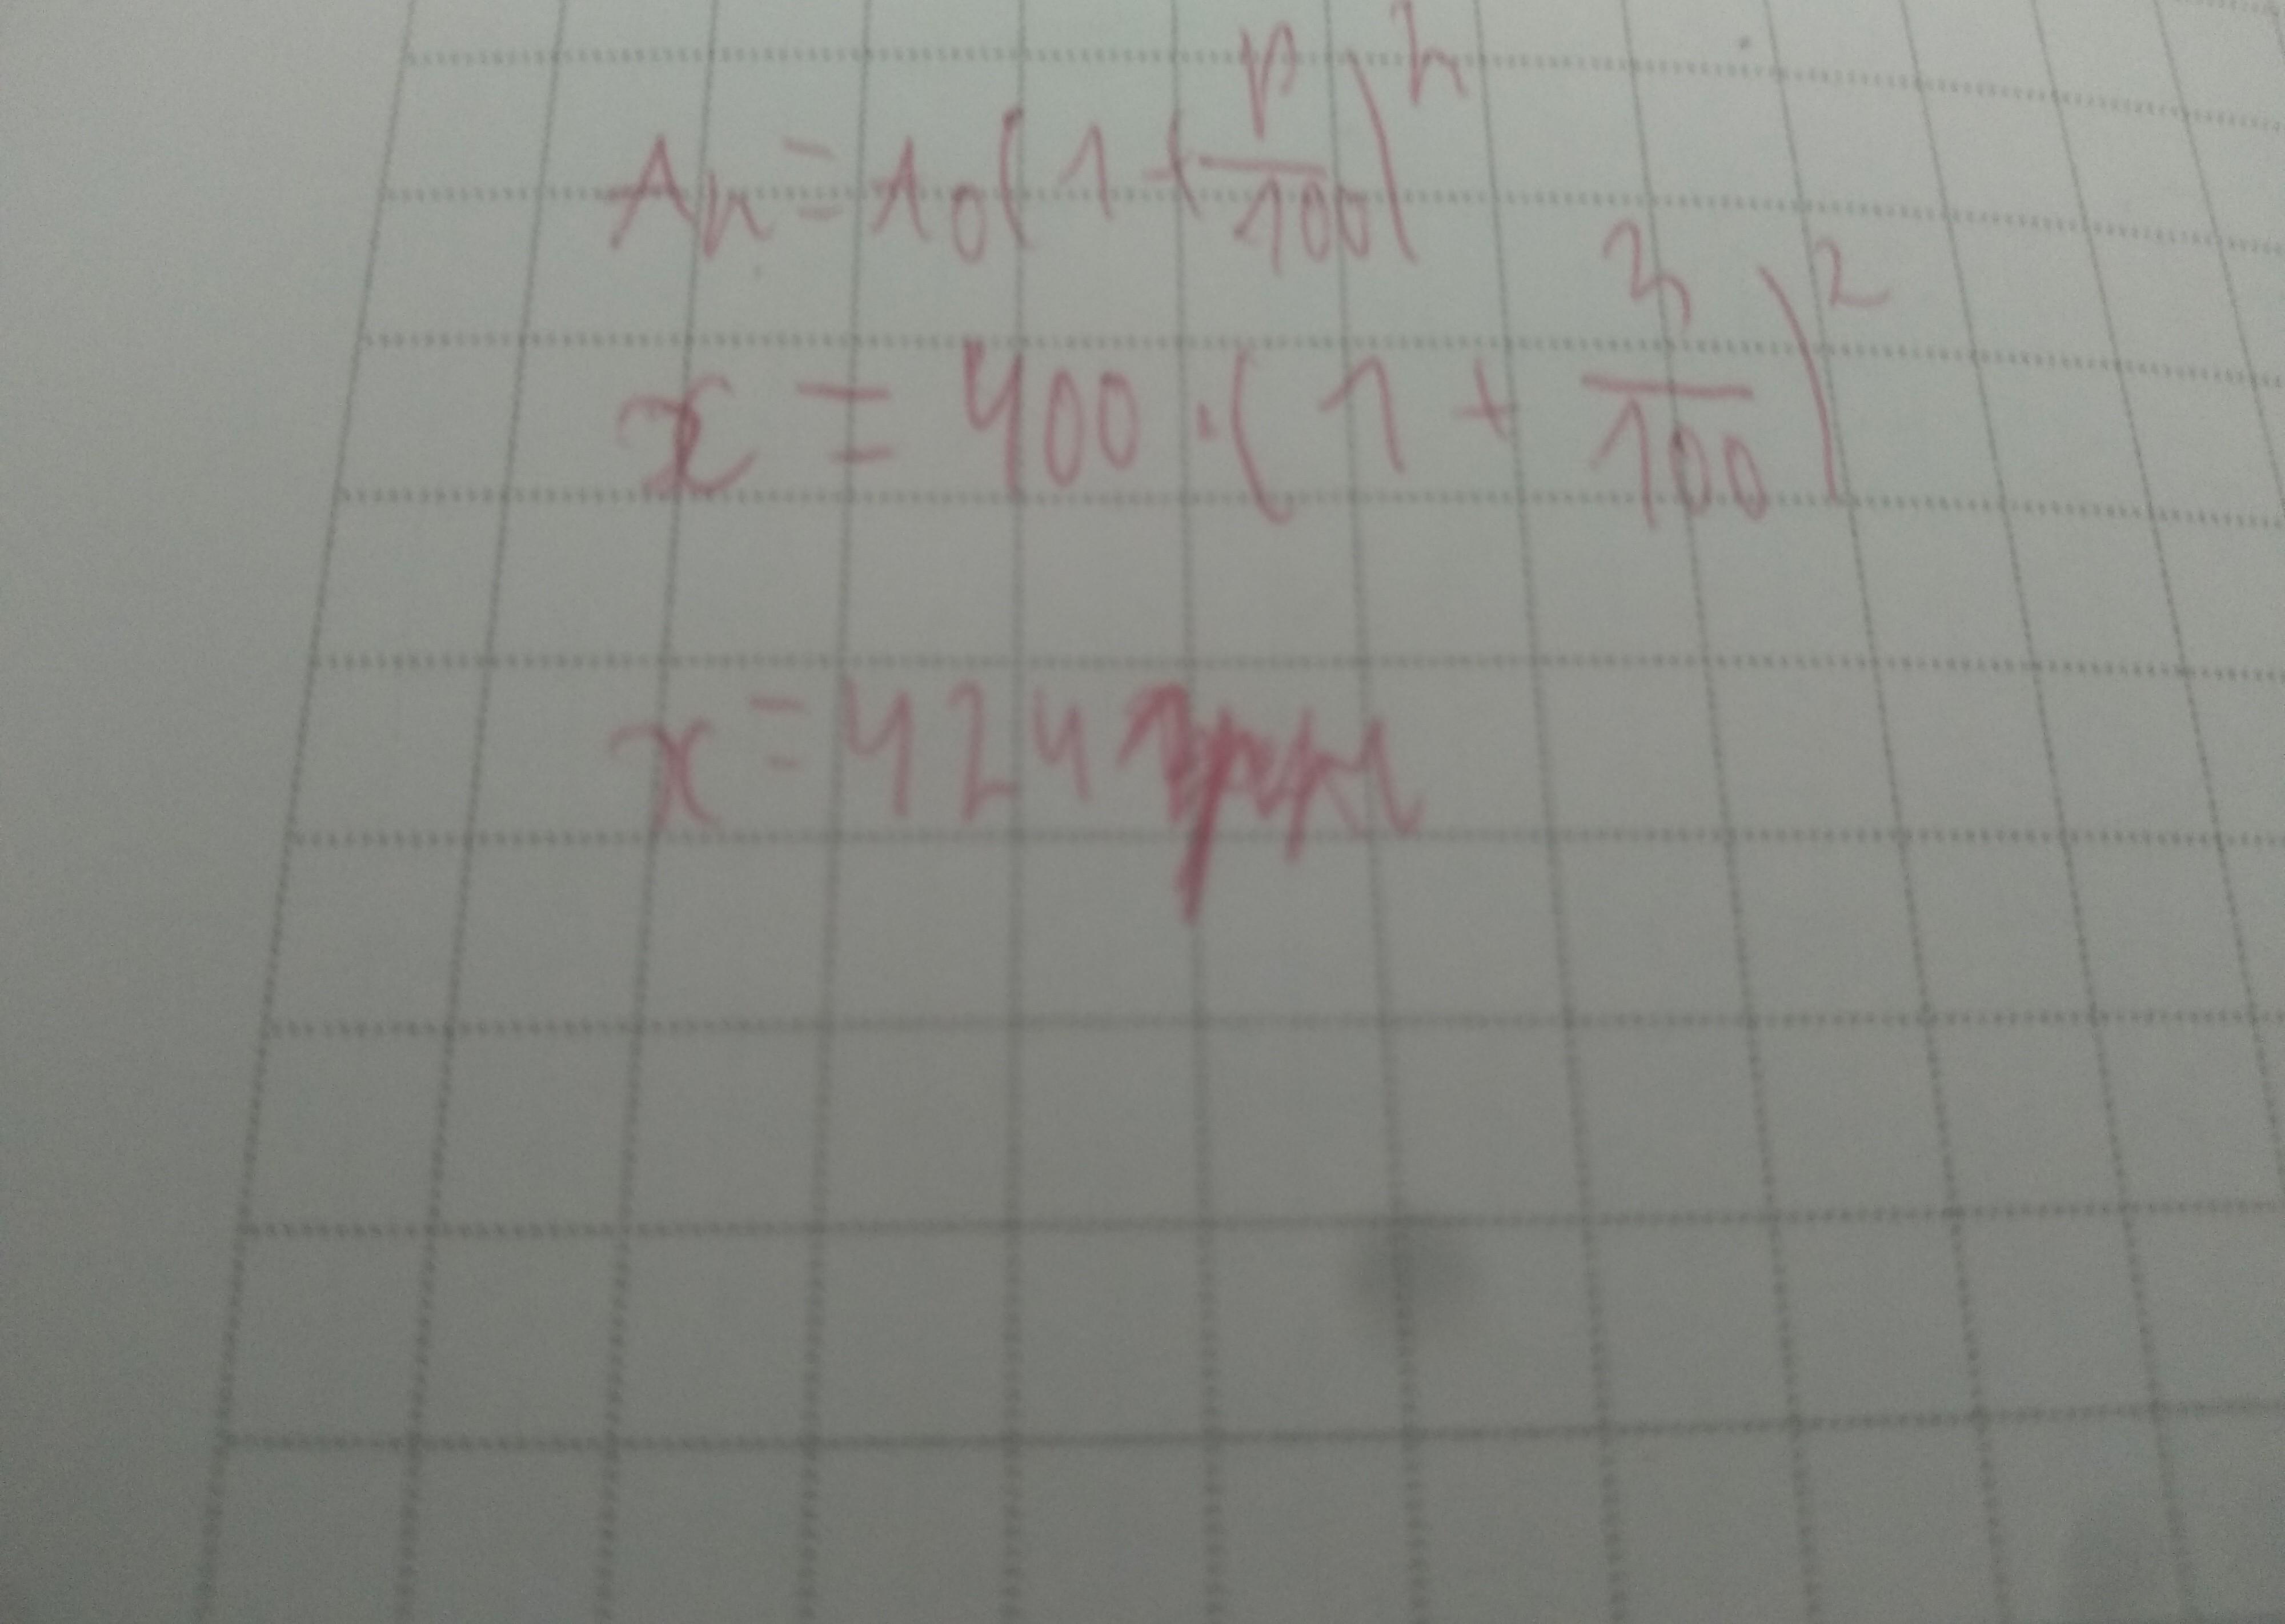 An = A0(1+p/100)^n
x = 400·(1+3/100)^2
x = 424